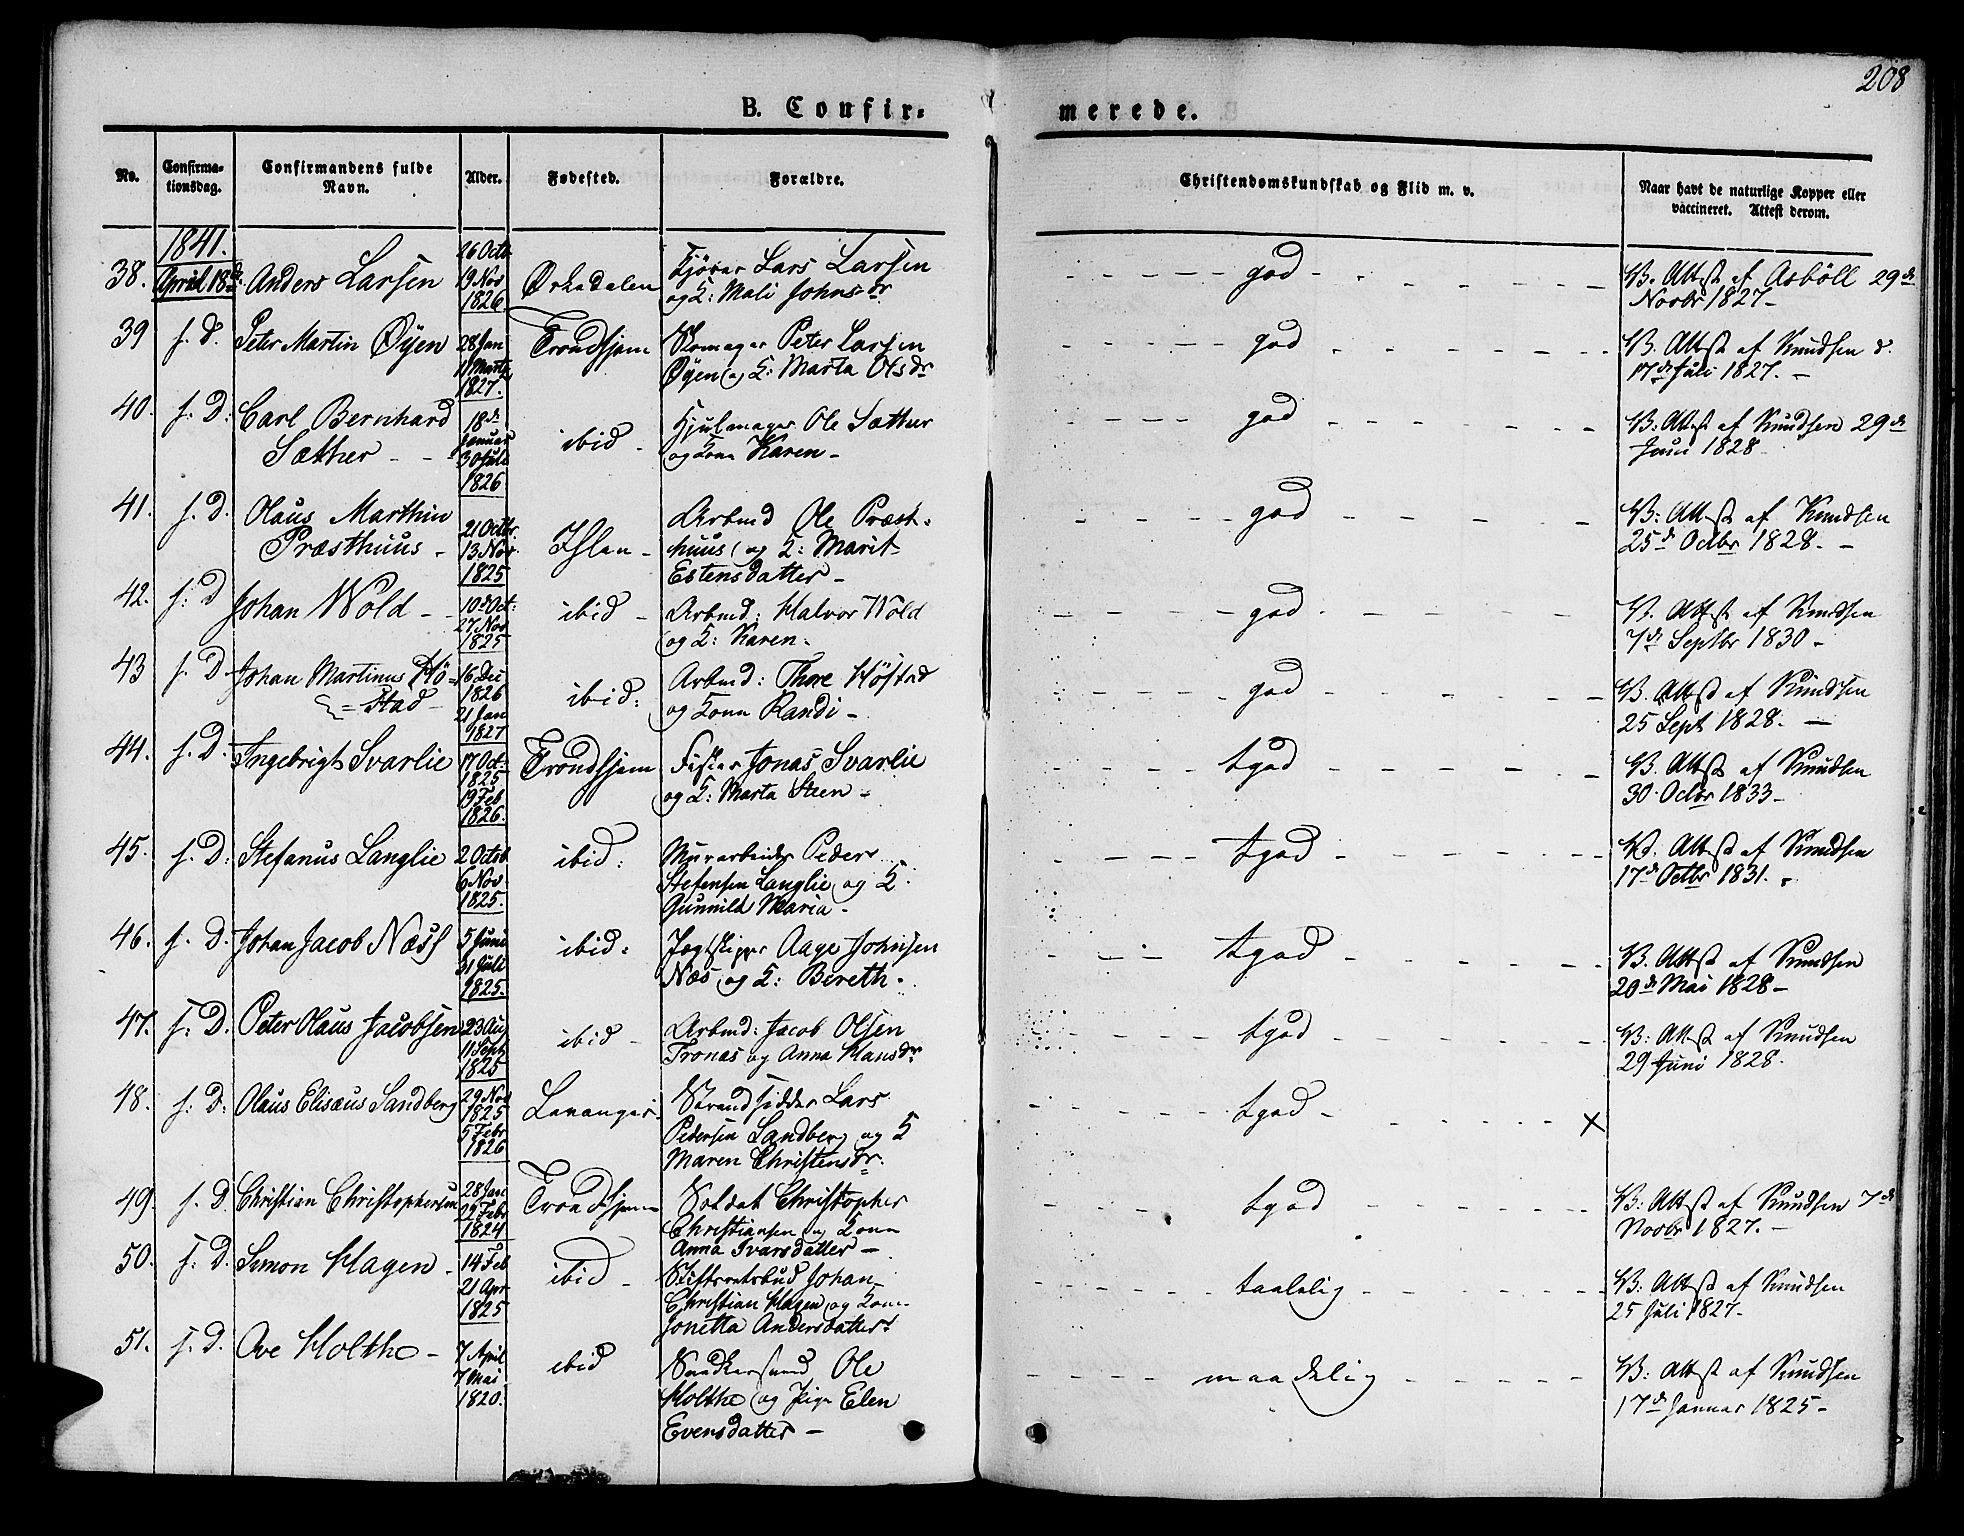 208
B. Confirmerede.
No. Confirmationsdag. Confirmandens fulde Navn. Alder. Fødested. Forældre. Christendomskundskab og Flid m. v. Naar havt de naturlige Kopper eller vaccineret. Attest derom.
1841.
38. April 18de Anders Larsen 26 Octb 19 Nov 1826 Orkedalen Kjører Lars Larsen og K: Mali Johnsdr god V. Attest af Asbøll 29de Novbr 1827.
39 s. D. Peter Martin Øyen 28 Jan 11 Marts 1827. Trondhjem Skomager Peter Larsen Øyen og K: Marta Olsdr god V. Attest af Knudsen d. 17de Juli 1827.
40. s. D. Carl Bernhard Sæther 18de Januar 30 Juli 1826 ibid Hjulmager Ole Sæther og Kone Karen god V: Attest af Knudsen 29de Juni 1828
41. s. D. Olaus Marthin Præsthuus 21 Octbr. 13 Nov. 1825 Ihlen Arbmd Ole Præsthuus og K: Marit Estensdatter god V: Attest af Knudsen 25de Octbr 1828.
42. s. D Johan Wold 10de Oct: 27 Nov 1825 ibid Arbmd: Halvor Wold og K: Karen. god V. Attest af Knudsen 7de Septbr 1830
43 s. D Johan Martinus Höstad 16 Dec 1826 21 Jan 1827 ibid: Arbmd: Thore Höstad og Kone Randi god V. Attest af Knudsen 25 Sept 1828.
44. s. D. Ingebrigt Svarlie 17 Oct: 1825 19 Feb 1826. Trondhjem Fisker Jonas Svarlie og K: Marta Steen tgod V. Attest af Knudsen 30 Octbr 1833
45. s. D. Stefanus Langlie 2 Octob 6 Nov 1825. ibid: Murarbeider Peder Stefensen Langlie og K. Gunnild Maria tgod V. Attest af Knudsen 17de Octbr 1831.
46. s. D. Johan Jacob Næss 5 Juni 31 Juli 1825. ibid: Jagtskipper Aage Johnsen Næs og K: Bereth. tgod V. Attest af Knudsen 20de Mai 1828
47. s. D. Peter Olaus Jacobsen 23 Aug 11 Sept 1825 ibid Arbmd: Jacob Olsen Tronæs og Anna Hansdr tgod V: Attest af Knudsen 29 Juni 1828.
48. s. D. Olaus Elisæus Sandberg 29 Nov 1825 5 Febr 1826 Levanger Strandsidder Lars Pedersen Sandberg og K Maren Christensdr. tgod X
49. s. D. Christian Christophersen 28 Jan 29 Febr 1824 Trondhjem Soldat Christopher Christiansen og Kone Anna Ivarsdatter tgod V: Attest af Knudsen 7de Novbr 1827.
50. s. D. Simon Hagen 14 Feb 21 Apr 1825 ibid Stiftsretsbud Johan Christian Hagen og Kone Jonetta Andersdatter taalelig V: Attest af Knudsen 25 Juli 1827
51. s. D. Ove Holthe 7 April 7 Mai 1820. ibid Ole Holthe og Pige Elen Evensdatter maadelig V: Attest af Knudsen 17de Januar 1825